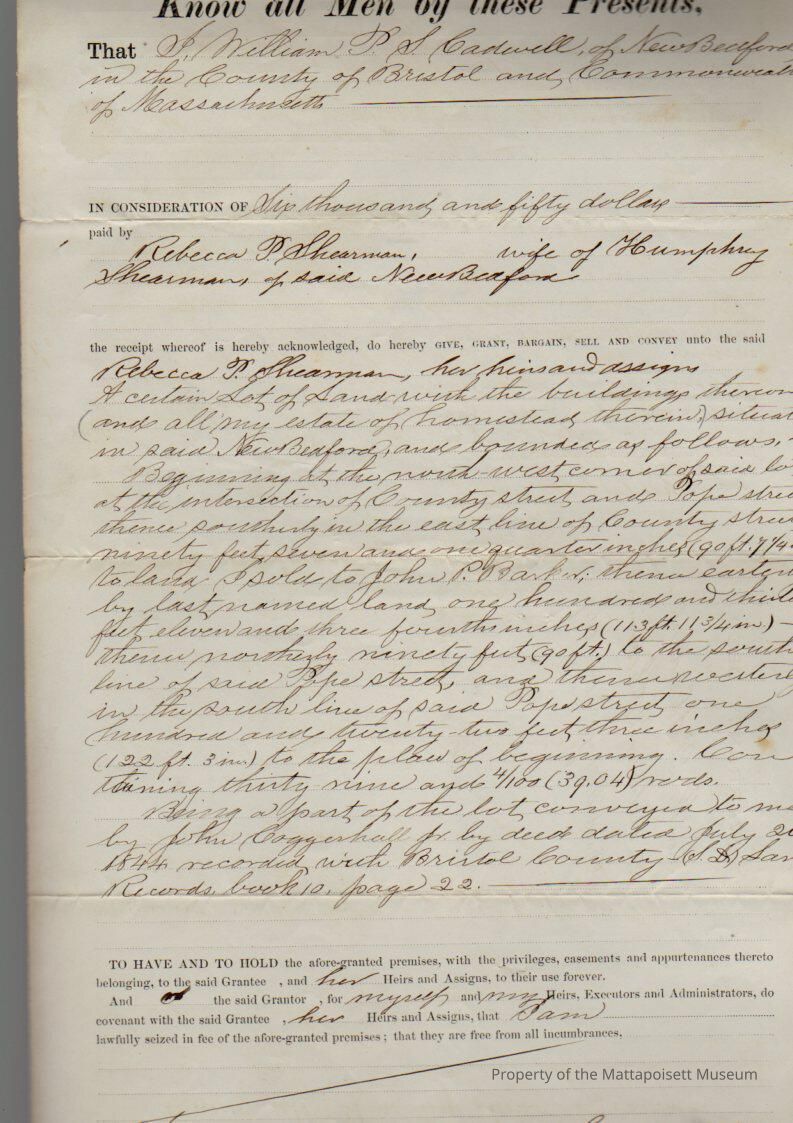 Know all Men by these Presents,
That I, William P. S. Cadwell, of New Bedford
in the County of Bristol and Commonwealt
of Massachusetts
IN CONSIDERATION OF Six thousand and fifty dollars
paid by
Rebecca P. Shearman, wife of Humphrey
Shearman, of said New Bedford
the receipt whereof is hereby acknowledged, do hereby GIVE, GRANT, BARGAIN, SELL AND CONVEY unto the said
Rebecca P. Shearman, her heirs and assigns
A certain Lot of Land with the buildings thereon
(and all my estate of homestead therein,) situat
in said New Bedford, and bounded as follows,
Beginning at the north-west corner of said lo
at the intersection of County street and Pope stree
thence southerly in the east line of County stree
ninety feet seven and one quarter inches (90 ft. 7 1/4
to land I sold to John P. Barker; thence easter
by last named land one hundred and thirte
feet eleven and three fourths inches (113 ft. 11 3/4 in.) -
thence northerly ninety feet (90 ft.) to the south
line of said Pope street, and thence wester
in the south line of said Pope street one
hundred and twenty-two feet three inches
(122 ft. 3 in.) to the place of beginning. Con
taining thirty nine and 4/100 (39.04) rods.
Being a part of the lot conveyed to me
by John Coggeshall Jr. by deed dated July 2
1844 recorded with Bristol County (S.D.) Lan
Records, book 10, page 22.
TO HAVE AND TO HOLD the afore-granted premises, with the privileges, easements and appurtenances thereto
belonging, to the said Grantee , and her Heirs and Assigns, to their use forever.
And the said Grantor , for myself and my Heirs, Executors and Administrators, do
covenant with the said Grantee , her Heirs and Assigns, that I am
lawfully seized in fee of the afore-granted premises; that they are free from all incumbrances,
Property of the Mattapoisett Museum